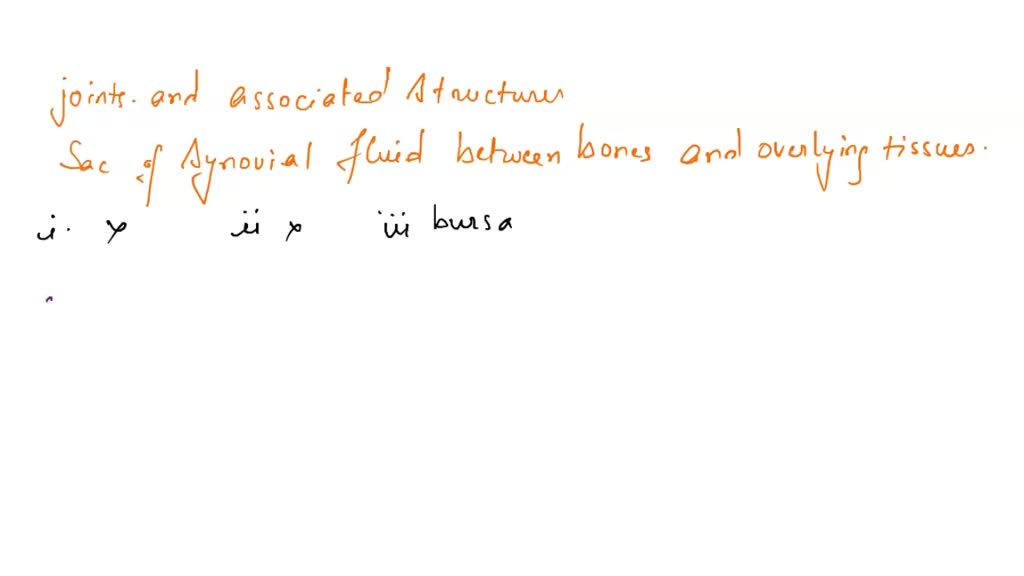 joints. and associated structures
Sac of synovial fluid between bones and overlying tissues.
i. x ii x iii bursa